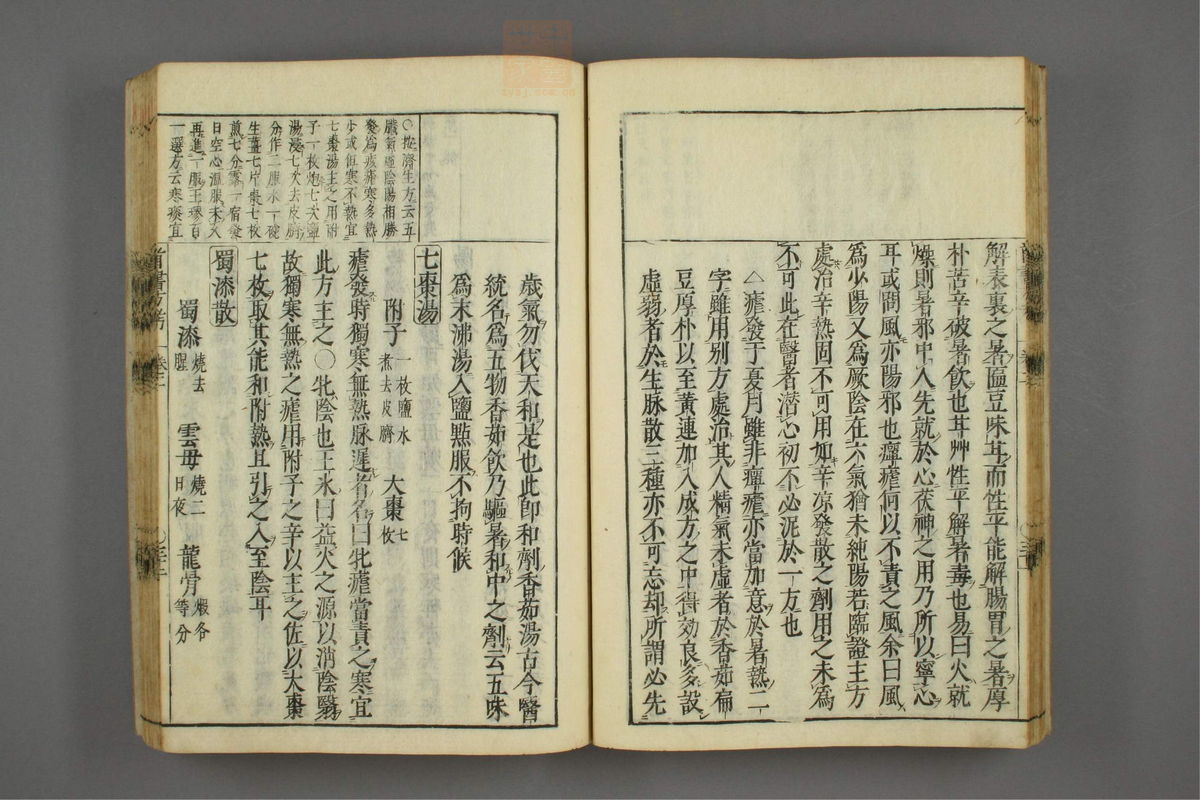 解表裏之暑匾豆味甘而性平能解腸胃之暑厚
朴苦辛破暑飲也甘艸性平解暑毒也易曰火就
燥則暑邪中人先就於心茯神之用乃所以寧心
耳或問風亦陽邪也癉瘧何以不責之風余曰風
為少陽又為厥陰在六氣猶未純陽若臨證主方
處治辛熱固不可用如辛凉發散之劑用之未為
不可此在醫者潜心初不必泥於一方也
△瘧發于夏月雖非癉瘧亦當加意於暑熱二
字雖用别方處治其人精氣未虛者於香茹扁
豆厚朴以至黄連加入成方之中得効良多設
虛弱者於生脉散三種亦不可忘却所謂必先
歲氣勿伐天和是也此卽和劑香茹湯古今醫
統名為五物香茹飲乃驅暑和中之劑云五味
為末沸湯入鹽點服不拘時候
○按濟生方云五
臟氣虛陰陽相勝
發為痎瘧寒多熱
少或但寒不熱宜
七棗湯主之用附
子一枚炮七次鹽
湯浸七次去皮臍
分作二服水一碗
生薑七片棗七枚
煎七分露一宿發
日空心温服未久
再進一服王璆百
一選方云寒瘧宜
七棗湯
附子 一枚鹽水煮去皮臍 大棗 七枚
瘧發時獨寒無熱脉遲者名曰牝瘧當責之寒宜
此方主之○牝陰也王氷曰益火之源以消陰翳
故獨寒無熱之瘧用附子之辛以主之佐以大棗
七枚取其能和附熱且引之入至陰耳
蜀漆散
蜀漆 燒去腥 雲母 燒二日夜 龍骨 煆各等分